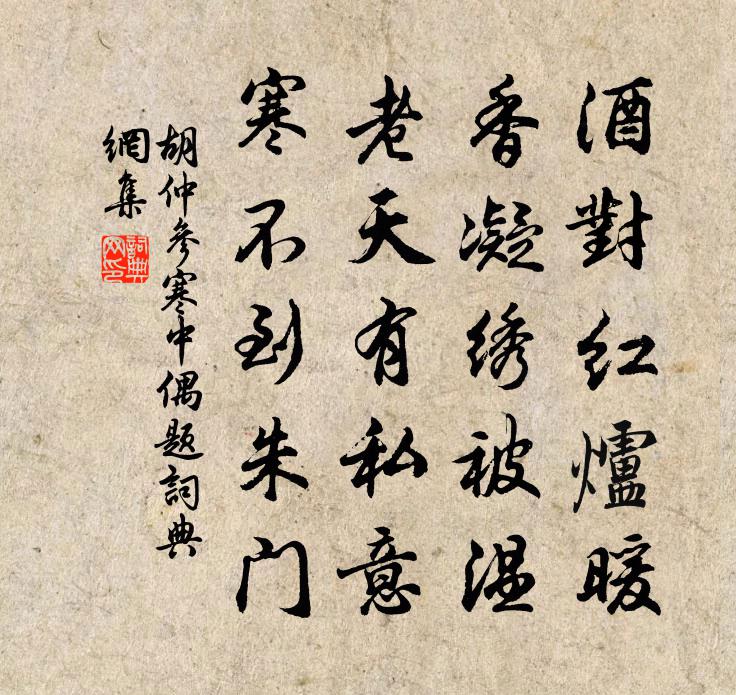 酒對红爐暖
香凝绣被温
老天有私意
寒不到朱门
胡仲參寒中偶题詞典
網集
詞典
网印